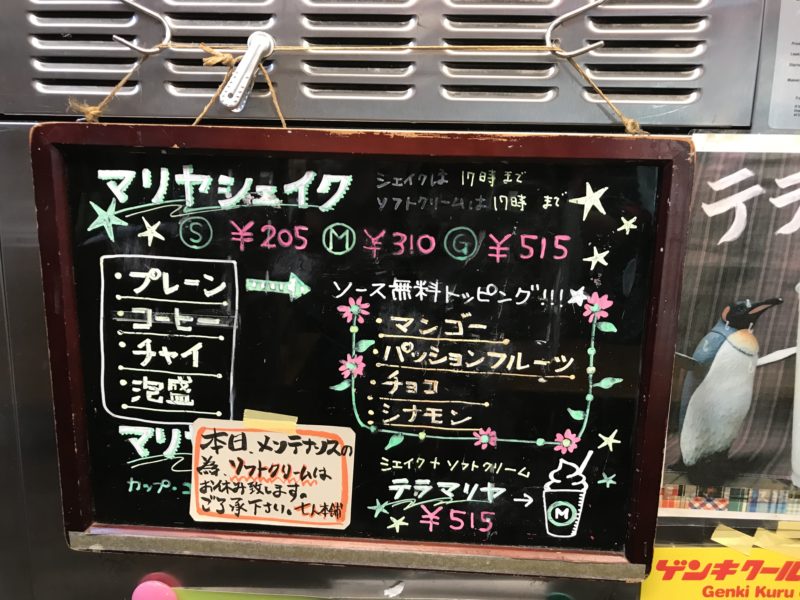 マリヤシェイク
シェイクは 17時まで
ソフトクリームは17時 まで
S ¥205 M ¥310 G ¥515
・プレーン
・コーヒー
・チャイ
・泡盛
ソース無料トッピング!!!
・マンゴー
・パッションフルーツ
・チョコ
・シナモン
マリ
カップ・コ
本日、メンテナンスの
為、ソフトクリームは
お休み致します。
ご了承下さい。七人本舗
シェイク+ソフトクリーム
テラマリヤ→
¥515
M
テラ
ゲンキクール
Genki Kuru